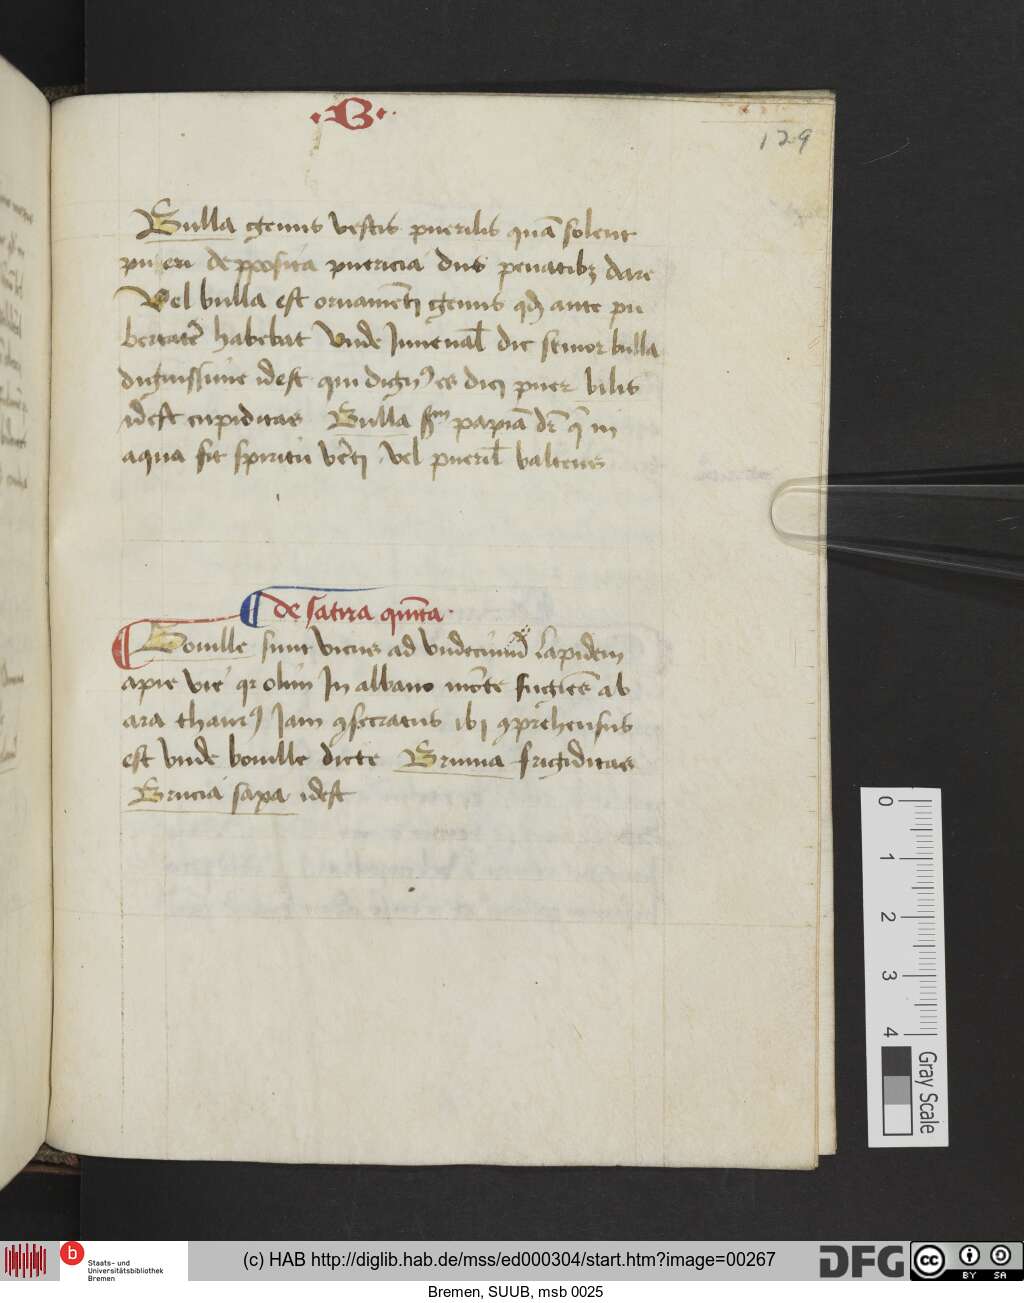 ·B·
129
Bulla genus vestis puerilis quā solent
pueri depposita puericia dus penatibꝫ dare
Vel bulla est ornamēti genus qđ ante pu
bertatē habebāt Vnde Juuenaƚ dic senior bulla
dignissime idest qui dignꝰ es dici puer bilis
idest cupiditas Bulla ẜm papiā dr̄ q̄ in
aqua fit spiritu vēti vel puerilꝭ balteus
de satira quīta·
Bouille sunt vicus ad vndecimū lapidem
apie vie qr olim In albano mōte fugiēs ab
ara thaurꝰ Jam ꝯsecratus ibi ꝯprehensus
est vnde bouille dicte Bruma frigiditas
Brucia sapa idest
0
1
2
3
4
Gray Scale
Staats- und
Universitätsbibliothek
Bremen
(c) HAB http://diglib.hab.de/mss/ed000304/start.htm?image=00267
DFG
cc
BY SA
Bremen, SUUB, msb 0025